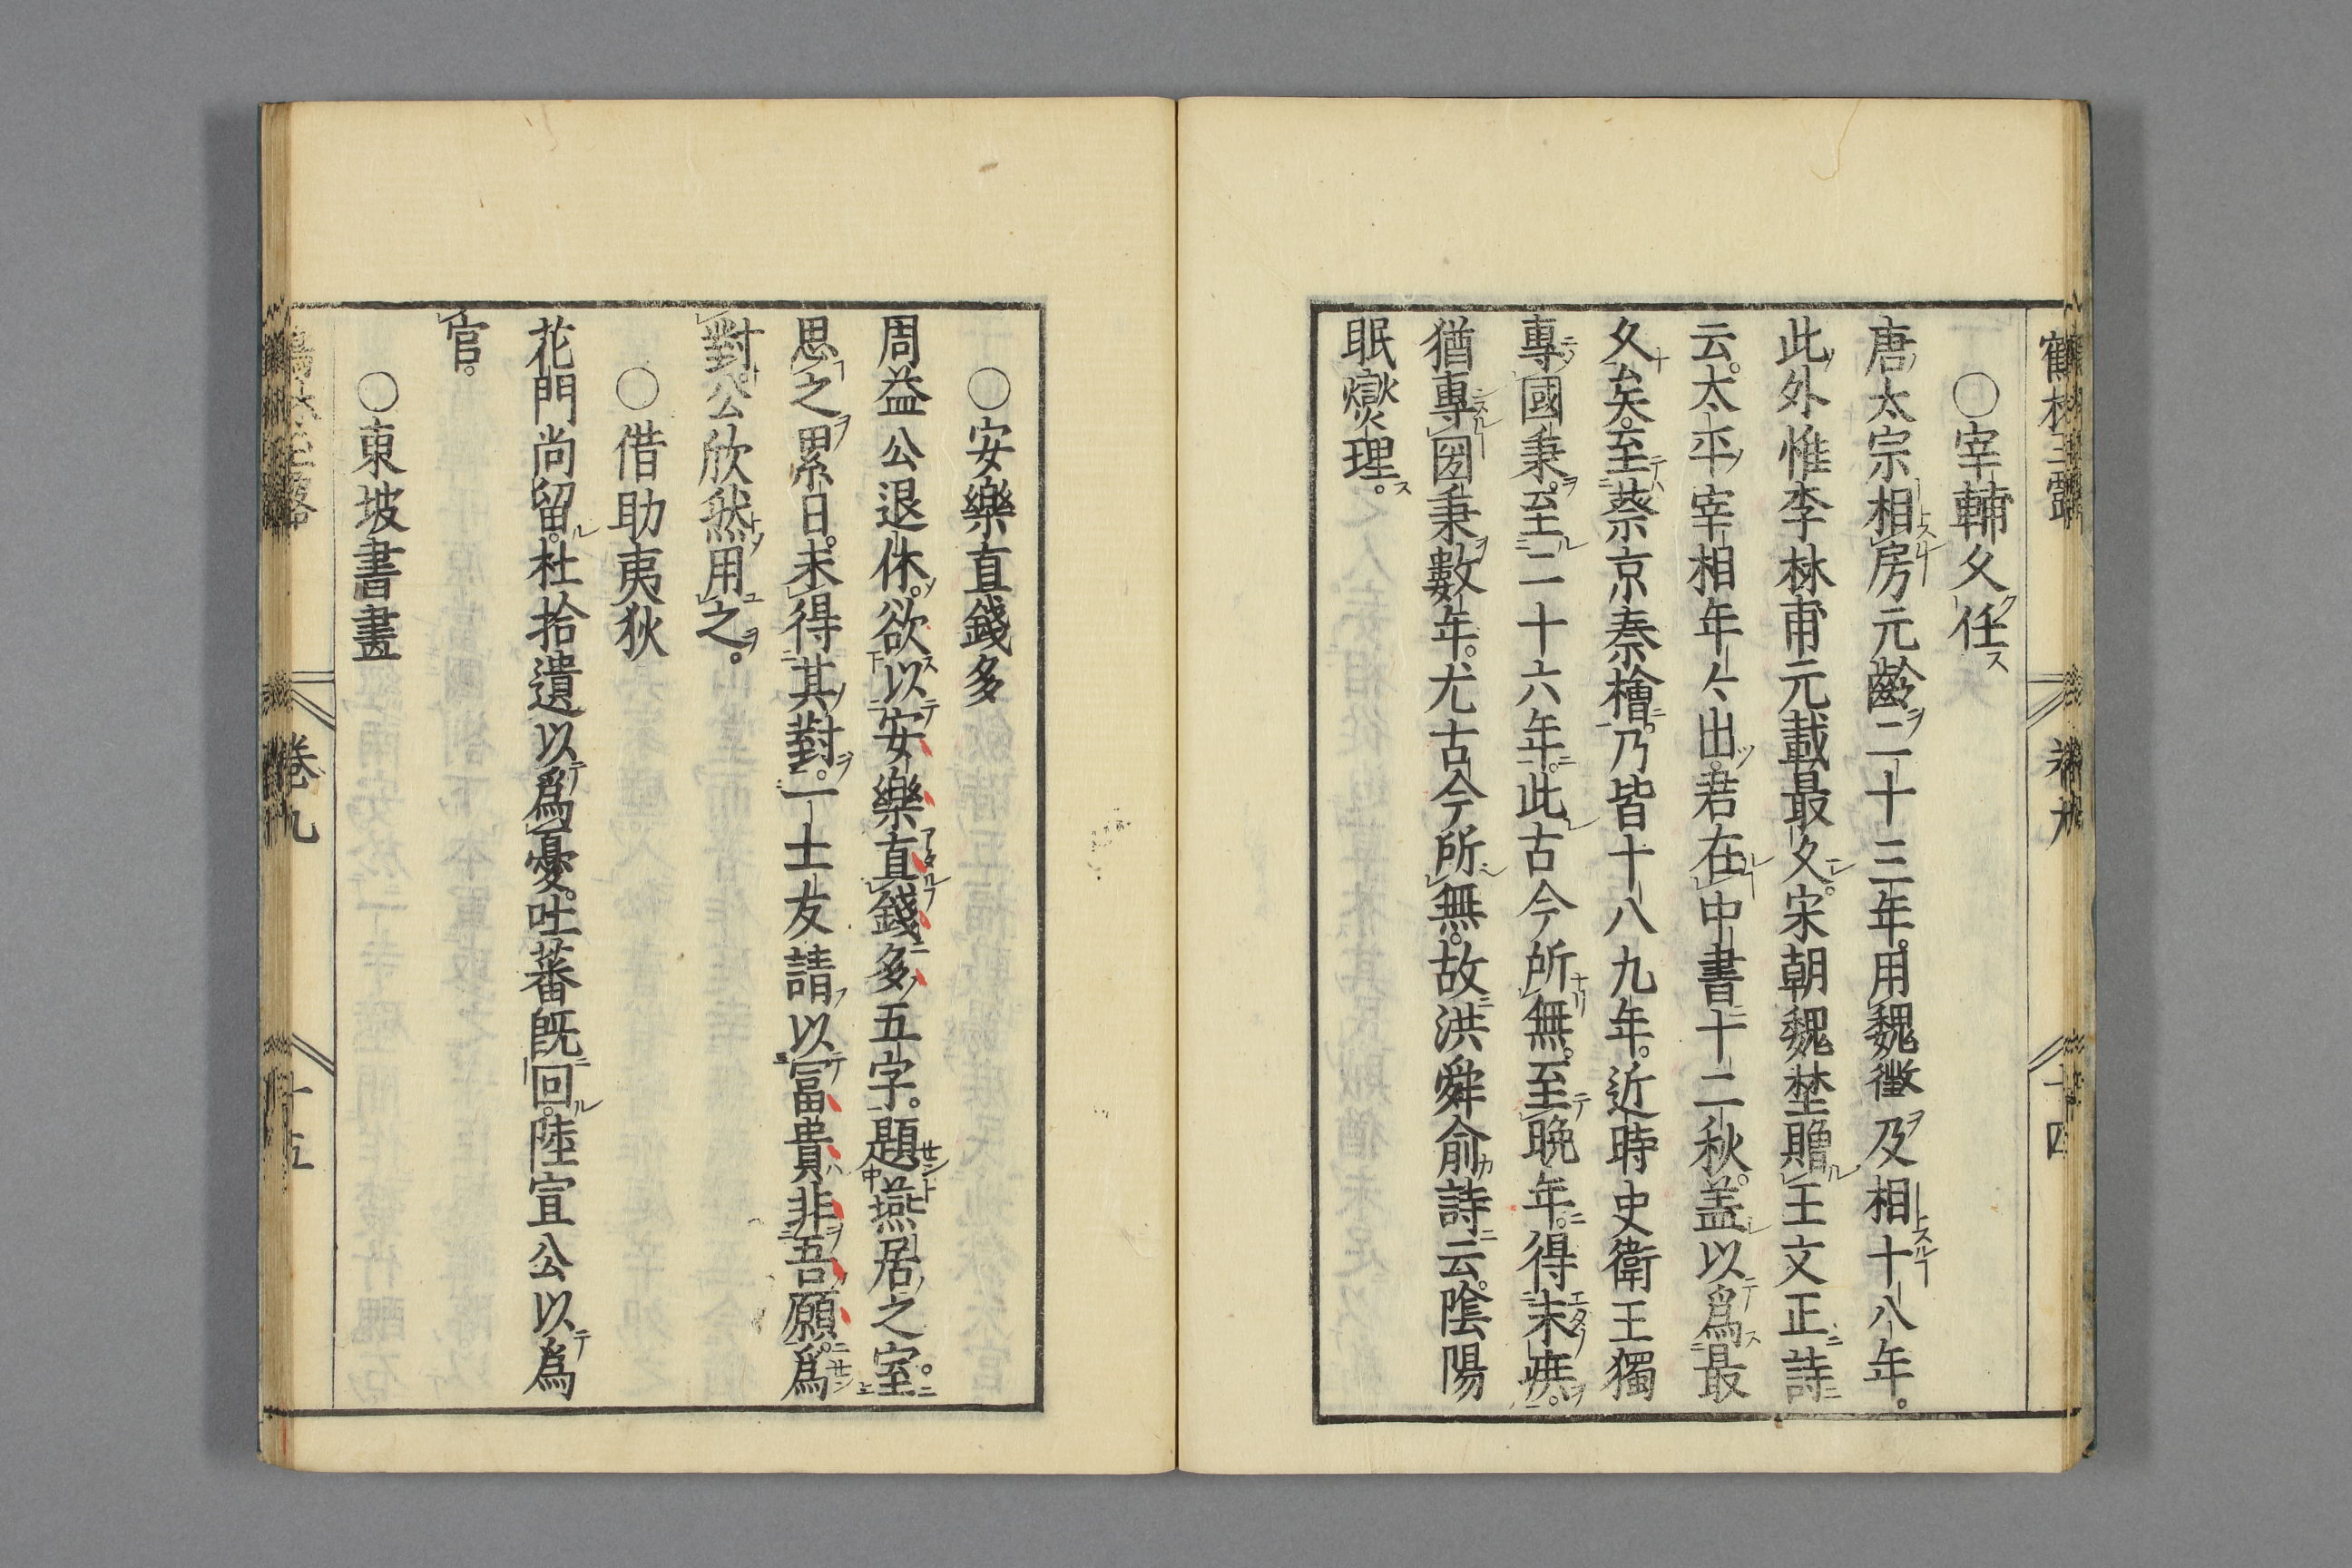 ○宰輔久任
唐太宗相房元齡二十三年。用魏徵及相十八年。
此外惟李林甫元載最久。宋朝魏埜贈王文正詩
云。太平宰相年々出。君在中書十二秋。盖以爲最
久矣。至蔡京秦檜。乃皆十八九年。近時史衛王獨
專國秉。至二十六年。此古今所無。至晚年。得末疾。
猶專國秉數年。尤古今所無。故洪舜俞詩云。陰陽
眠燮理。
卷九
十四
○安樂直錢多
周益公退休。欲以安樂直錢多五字。題燕居之室。
思之累日。未得其對。一士友請以富貴非吾願。爲
對。公欣然用之。
○借助夷狄
花門尚留。杜拾遺以爲憂。吐蕃旣回。陸宣公以爲
官。
○東坡書畫
卷九
十五